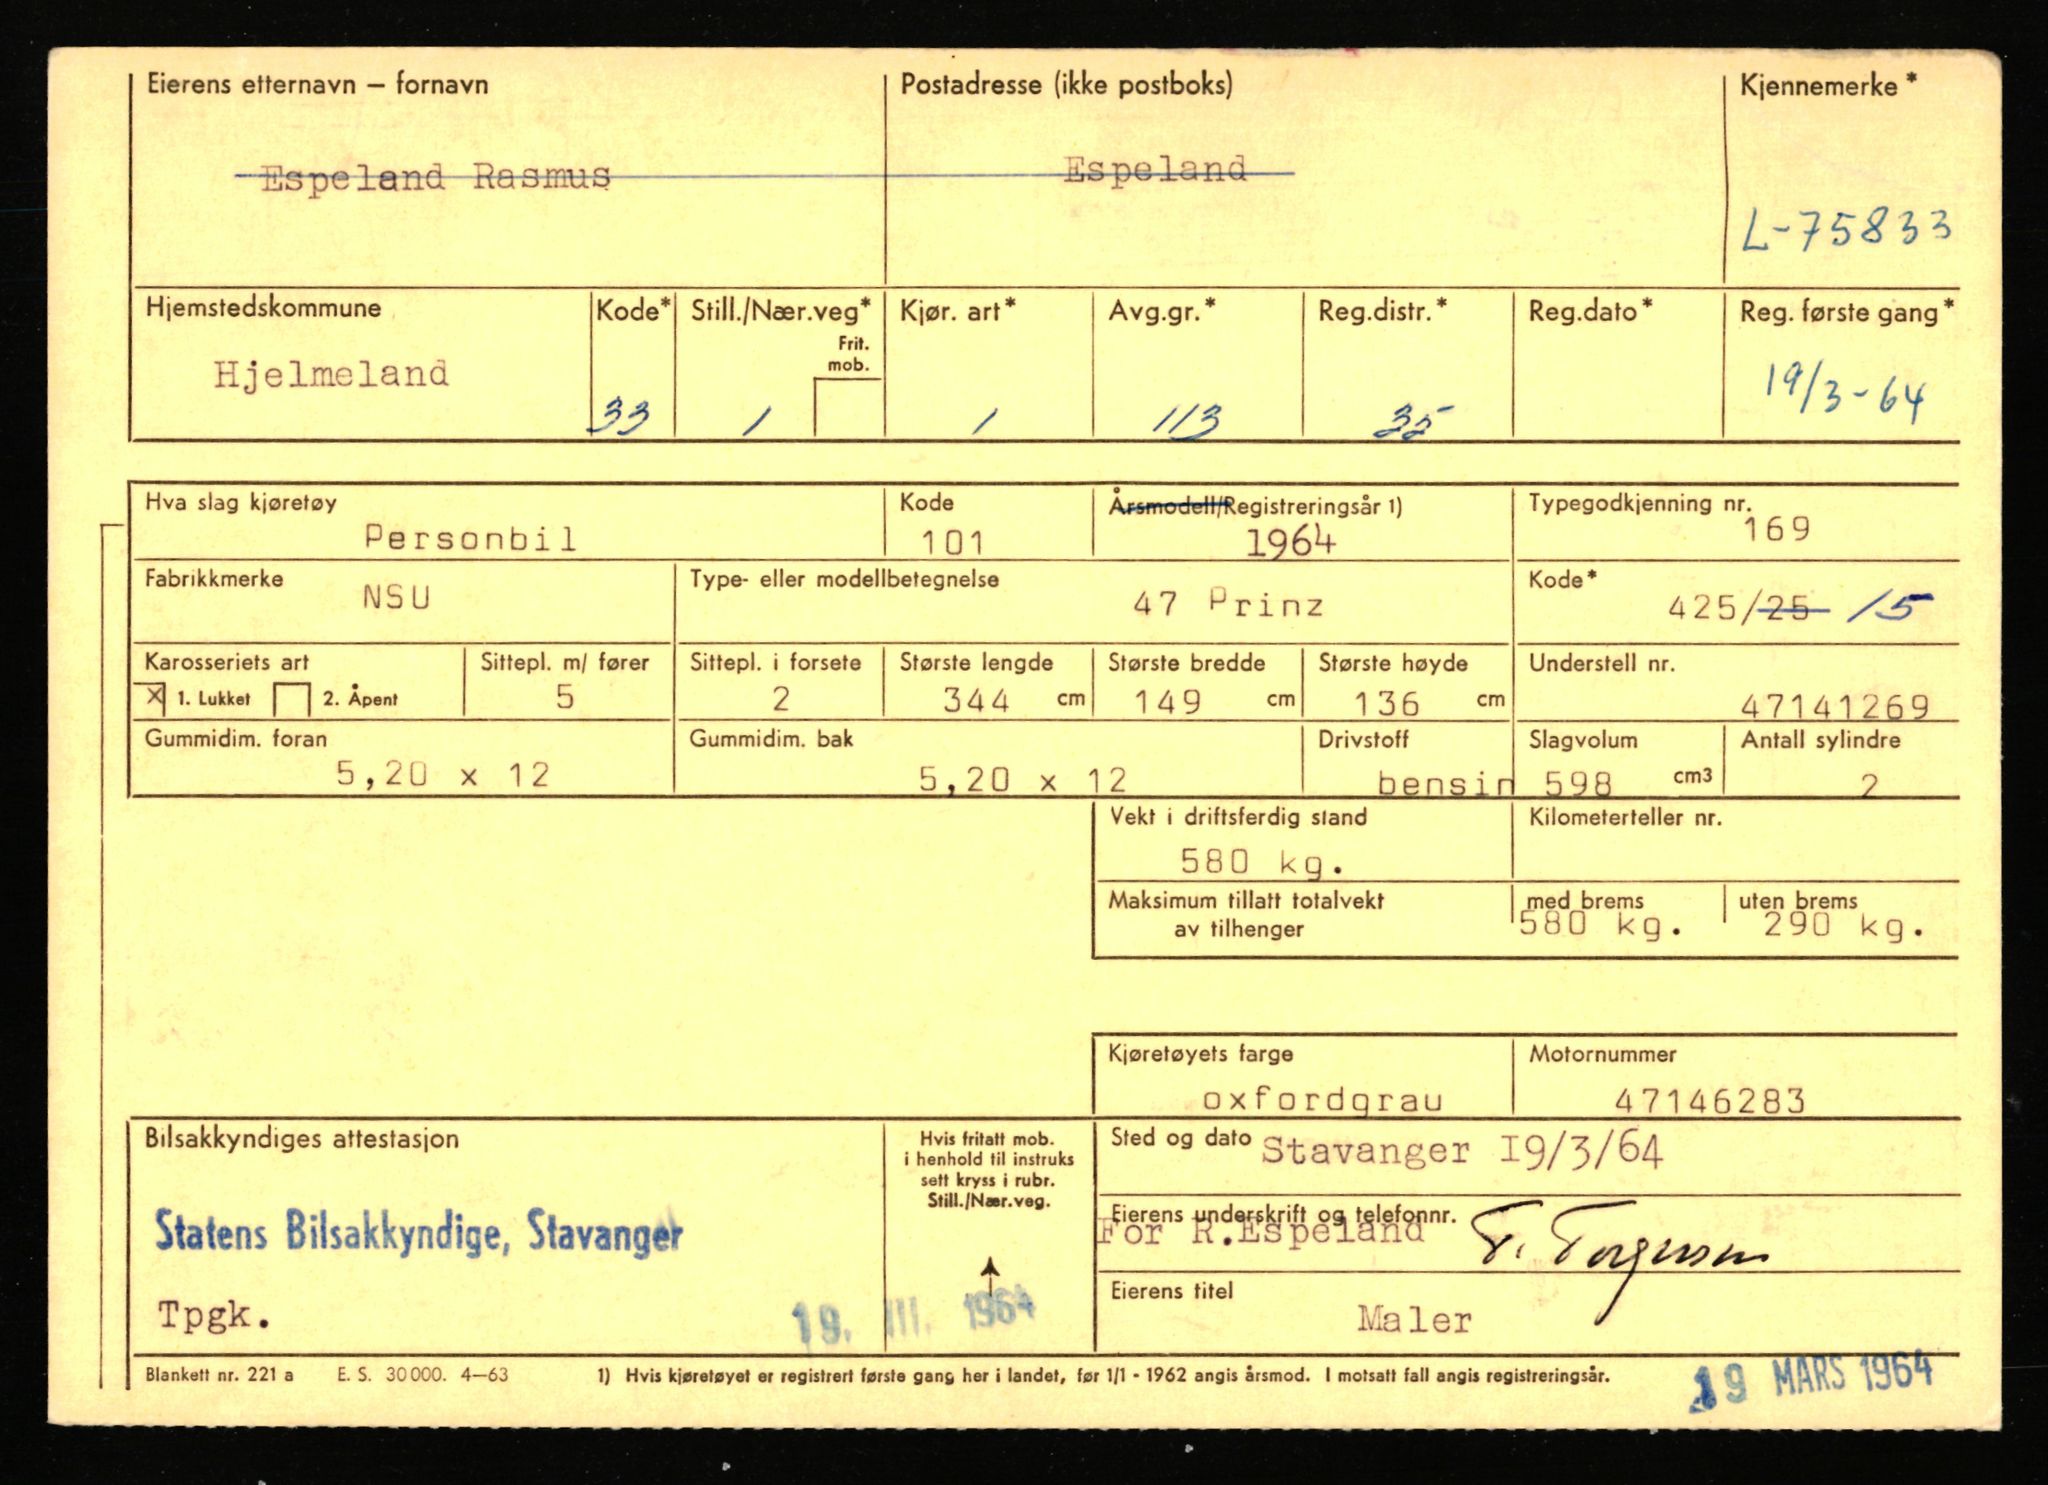 Eierens etternavn – fornavn Postadresse (ikke postboks) Kjennemerke*
Espeland Rasmus Espeland
L-75833
Hjemstedskommune Kode* Still./Nær.veg* Kjør. art* Avg.gr.* Reg.distr.* Reg.dato* Reg. første gang*
Frit.
mob.
Hjelmeland 33 1 1 113 35 19/3-64
Hva slag kjøretøy Kode Årsmodell/Registreringsår 1) Typegodkjenning nr.
Personbil 101 1964 169
Fabrikkmerke Type- eller modellbetegnelse Kode*
NSU 47 Prinz 425/25 /5
Karosseriets art Sittepl. m/ fører Sittepl. i forsete Største lengde Største bredde Største høyde Understell nr.
X 1. Lukket 2. Åpent 5 2 344 cm 149 cm 136 cm 47141269
Gummidim. foran Gummidim. bak Drivstoff Slagvolum Antall sylindre
5,20 x 12 5,20 x 12 bensin 598 cm3 2
Vekt i driftsferdig stand Kilometerteller nr.
580 kg.
Maksimum tillatt totalvekt med brems uten brems
av tilhenger 580 kg. 290 kg.
Kjøretøyets farge Motornummer
oxfordgrau 47146283
Bilsakkyndiges attestasjon Hvis fritatt mob.
i henhold til instruks
sett kryss i rubr.
Still./Nær.veg.
Sted og dato Stavanger I9/3/64
Statens Bilsakkyndige, Stavanger
Eierens underskrift og telefonnr.
For R.Espeland T. Torgersen
Eierens titel
Tpgk. 19. III. 1964 Maler
Blankett nr. 221 a E. S. 30 000. 4–63 1) Hvis kjøretøyet er registrert første gang her i landet, før 1/1 - 1962 angis årsmod. I motsatt fall angis registreringsår.
19 MARS 1964